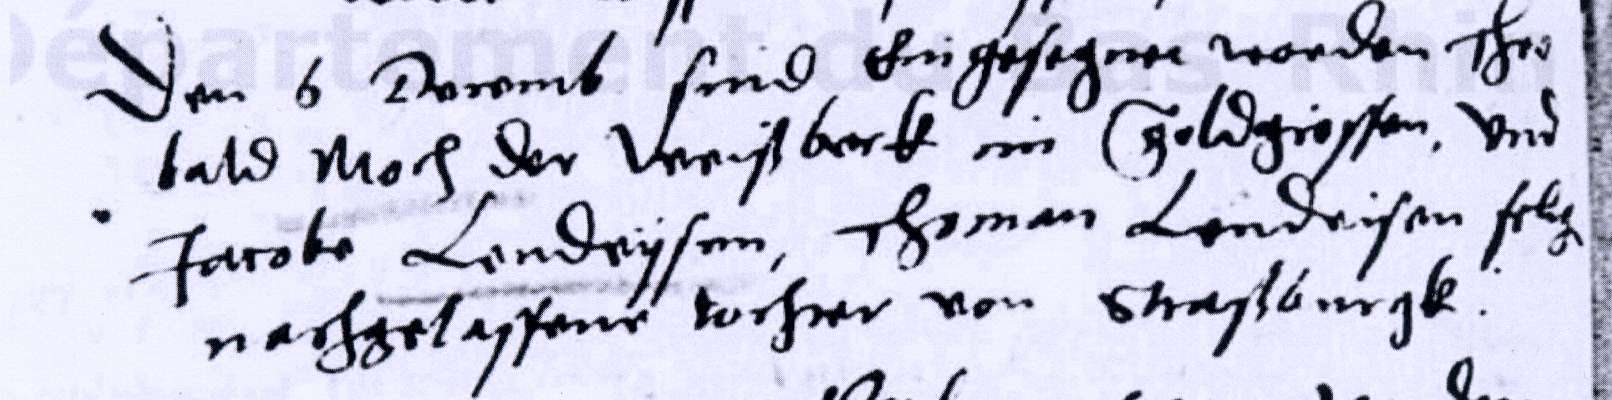 Département du Bas-Rhin
Den 6 Decemb sind Eingesegnet worden Theo
bald Moch der Weißbeck im Goldgiessen, und
Jacobe Lendeÿsen, Thoman Lendeisen selig
nachgelassene tochter von Straßburgk.